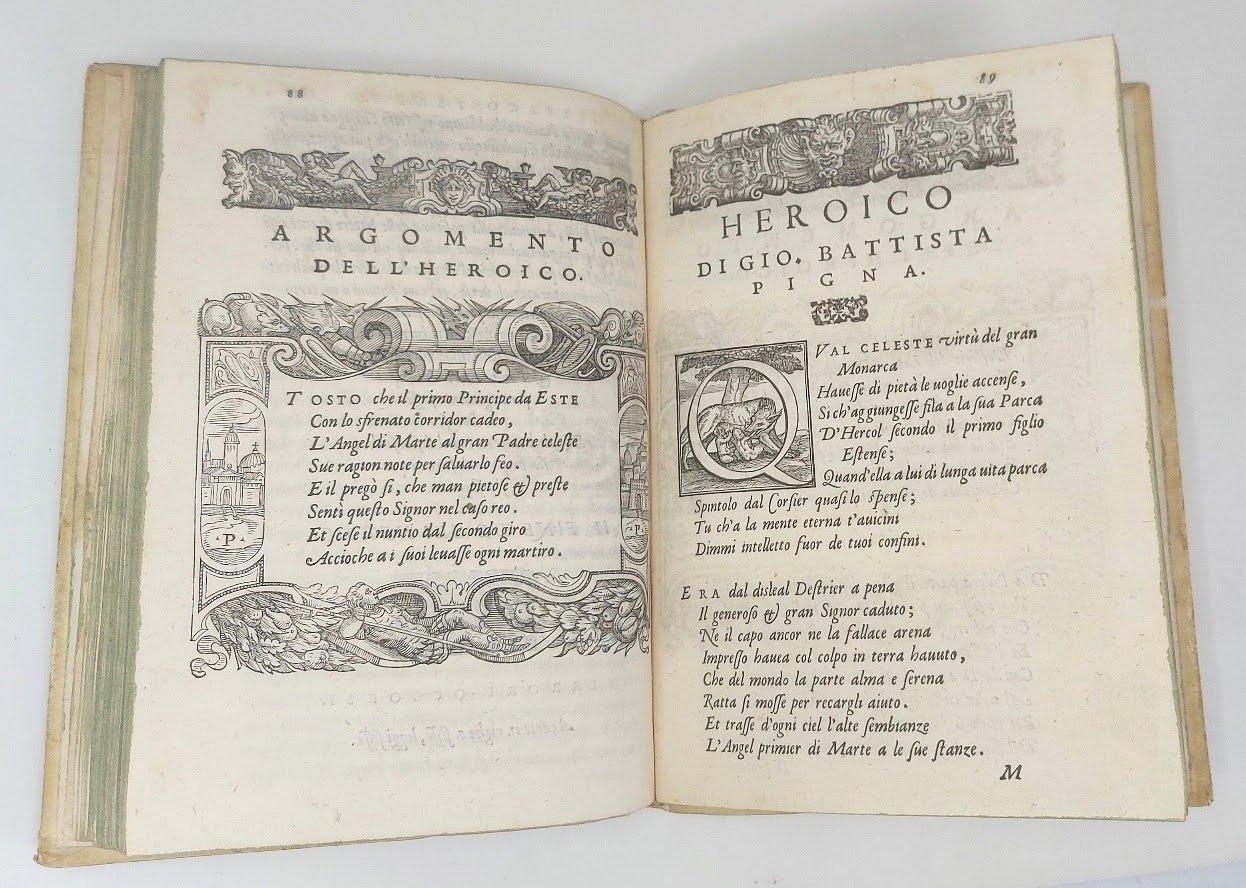 88
ARGOMENTO
DELL'HEROICO.
TOSTO che il primo Principe da ESTE
Con lo sfrenato corridor cadeo,
L'Angel di Marte al gran Padre celeste
Sue ragion note per saluarlo feo.
E il pregò si, che man pietose & preste
Sentì questo Signor nel caso reo.
Et scese il nuntio dal secondo giro
Accioche a i suoi leuasse ogni martiro.
.P.
.P.
89
HEROICO
DI GIO. BATTISTA
PIGNA.
QVAL CELESTE virtù del gran
Monarca
Hauesse di pietà le uoglie accense,
Si ch'aggiungesse fila a la sua Parca
D'Hercol secondo il primo figlio
Estense;
Quand'ella a lui di lunga uita parca
Spintolo dal Corsier quasi lo spense;
Tu ch'a la mente eterna t'auicini
Dimmi intelletto fuor de tuoi confini.
ERA dal disleal Destrier a pena
Il generoso & gran Signor caduto;
Ne il capo ancor ne la fallace arena
Impresso hauea col colpo in terra hauuto,
Che del mondo la parte alma e serena
Ratta si mosse per recargli aiuto.
Et trasse d'ogni ciel l'alte sembianze
L'Angel primier di Marte a le sue stanze.
M